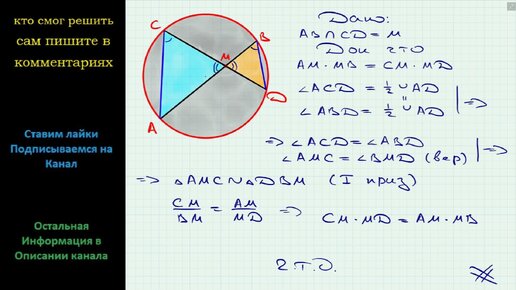 кто смог решить
сам пишите в
комментариях
Ставим лайки
Подписываемся на
Канал
Остальная
Информация в
Описании канала
C
B
M
D
A
Дано:
AB∩CD = M
Док что
AM·MB = CM·MD
∠ACD = ½ ∪AD
∠ABD = ½ ∪AD
⇒
⇒ ∠ACD = ∠ABD
∠AMC = ∠BMD (вер)
⇒
⇒ △AMC ∾ △DBM (I приз)
CM/BM = AM/MD ⇒ CM·MD = AM·MB
Ч.Т.Д.